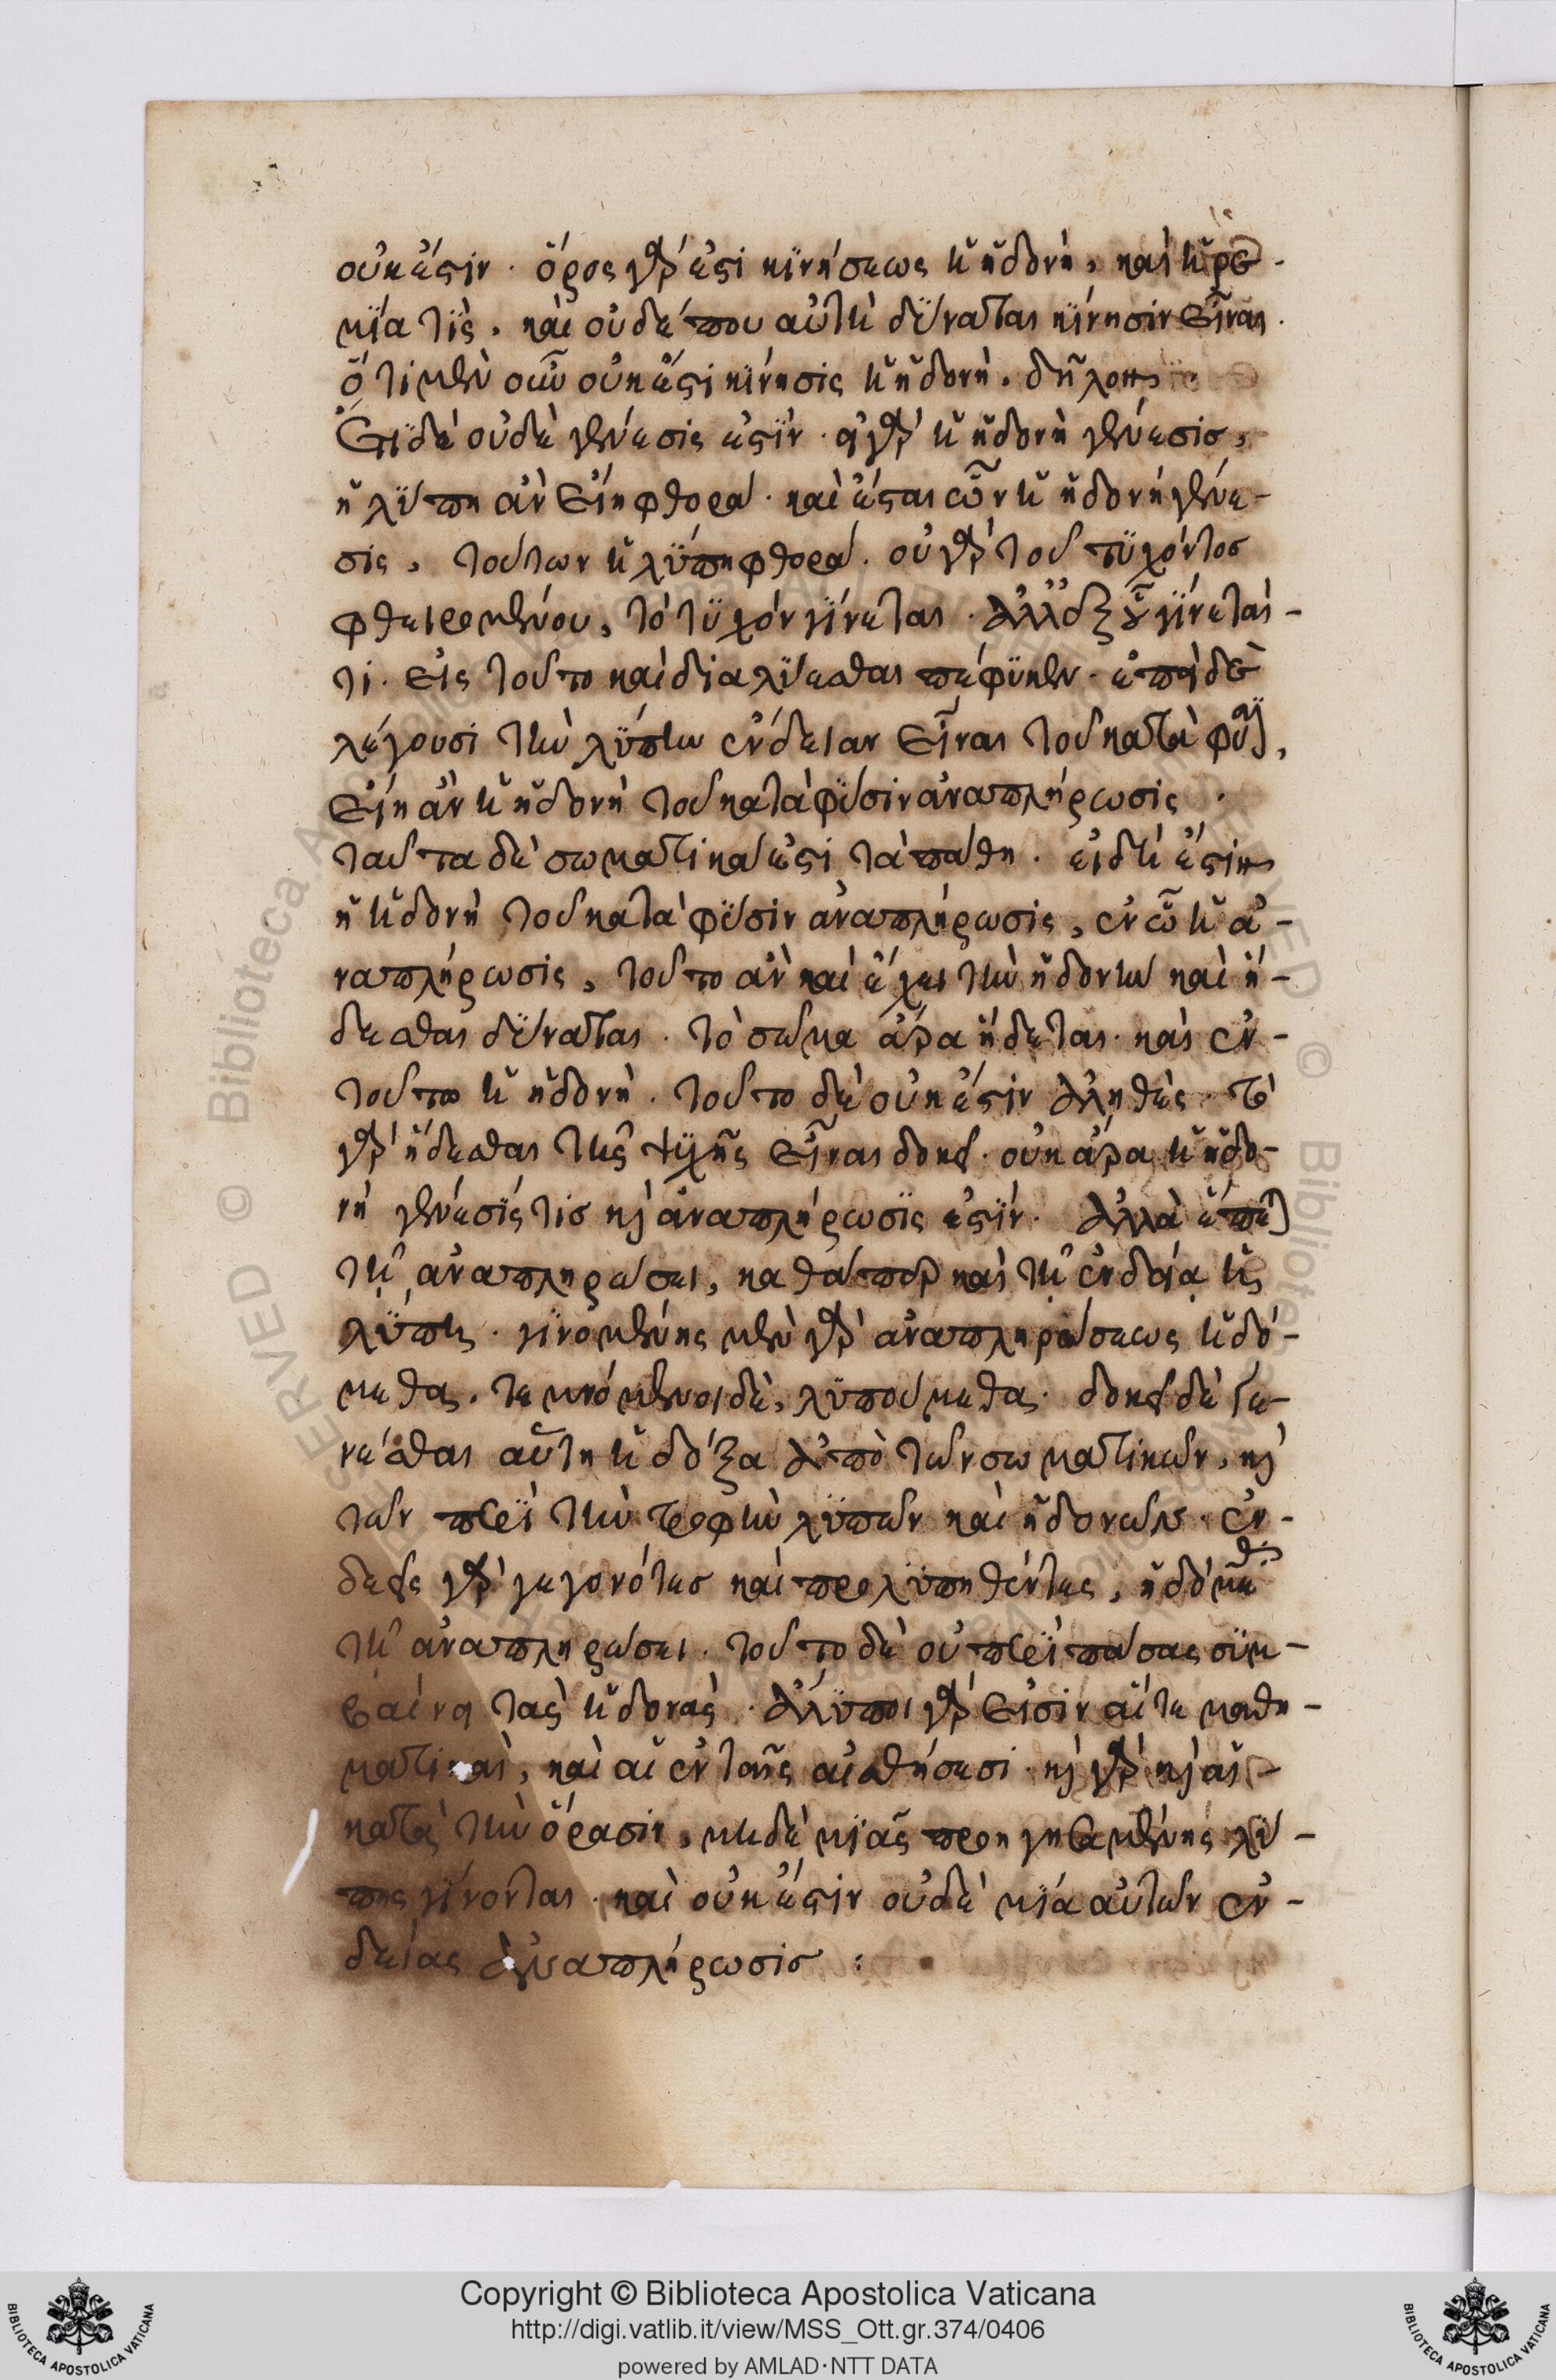 οὐκ ἔστιν. ὅρος γάρ ἐστι κινήσεως ἡ ἡδονὴ, καὶ ἠρε-
μία τίς. καὶ οὐδέπου αὐτὴ δύναται κίνησιν εἶναι.
ὅτι μὲν οὖν οὐκ ἔστι κίνησις ἡ ἡδονὴ, δῆλον
Εἰ δὲ οὐδὲ γένεσις ἐστίν. εἰ γὰρ ἡ ἡδονὴ γένεσις,
ἡ λύπη ἂν εἴη φθορά. καὶ ἔσται ὧν ἡ ἡδονὴ γένε-
σις, τούτων ἡ λύπη φθορά. οὐ γὰρ τοῦ τυχόντος
φθειρομένου, τὸ τυχόν γίνεται. ἀλλ' ἐξ οὗ γίνεταί
τι. εἰς τοῦτο καὶ διαλύεσθαι πέφυκεν. ἐπεὶ δὲ
λέγουσι τὴν λύπην ἔνδειαν εἶναι τοῦ κατὰ φύσιν,
εἴη ἂν ἡ ἡδονὴ τοῦ κατὰ φύσιν ἀναπλήρωσις.
ταῦτα δὲ σωματικά ἐστι τὰ πάθη. εἰ δή ἐστιν
ἡ ἡδονὴ τοῦ κατὰ φύσιν ἀναπλήρωσις, ἐν ᾧ ἡ ἀ-
ναπλήρωσις, τοῦτο ἂν καὶ ἔχει τὴν ἡδονὴν καὶ ἥ-
δεσθαι δύναται. τὸ σῶμα ἄρα ἥδεται. καὶ ἐν
τούτω ἡ ἡδονὴ. τοῦτο δὲ οὐκ ἔστιν ἀληθὲς. τὸ
γὰρ ἥδεσθαι τῆς ψυχῆς εἶναι δοκεῖ. οὐκ ἄρα ἡ ἡδο-
νή γένεσίς τις καὶ ἀναπλήρωσις ἐστίν. ἀλλὰ ἕπεται
τῇ ἀναπληρώσει, καθάπερ καὶ τῇ ἐνδείᾳ ἡ
λύπη. γινομένης μὲν γὰρ ἀναπληρώσεως ἡδό-
μεθα. τεμνόμενοι δὲ, λυπούμεθα. δοκεῖ δὲ γε-
νέσθαι αὕτη ἡ δόξα ἀπὸ τῶν σωματικῶν, καὶ
τῶν περὶ τὴν τροφὴν λυπῶν καὶ ἡδονῶν. ἐν-
δεεῖς γὰρ γεγονότες καὶ προλυπηθέντες, ἡδόμεθα
τῇ ἀναπληρώσει. τοῦτο δὲ οὐ περὶ πάσας συμ-
βαίνει τὰς ἡδονάς. ἄλυποι γάρ εἰσιν αἵ τε μαθη-
ματικαὶ, καὶ αἱ ἐν ταῖς αἰσθήσεσι. καὶ γὰρ καὶ αἱ
κατὰ τὴν ὅρασιν, μηδὲ μιᾶς προηγησαμένης λύ-
πης γίνονται. καὶ οὐκ ἔστιν οὐδὲ μία αὐτῶν ἐν-
δείας ἀναπλήρωσις :
Copyright © Biblioteca Apostolica Vaticana
http://digi.vatlib.it/view/MSS_Ott.gr.374/0406
powered by AMLAD·NTT DATA
BIBLIOTECA APOSTOLICA VATICANA
BIBLIOTECA APOSTOLICA VATICANA